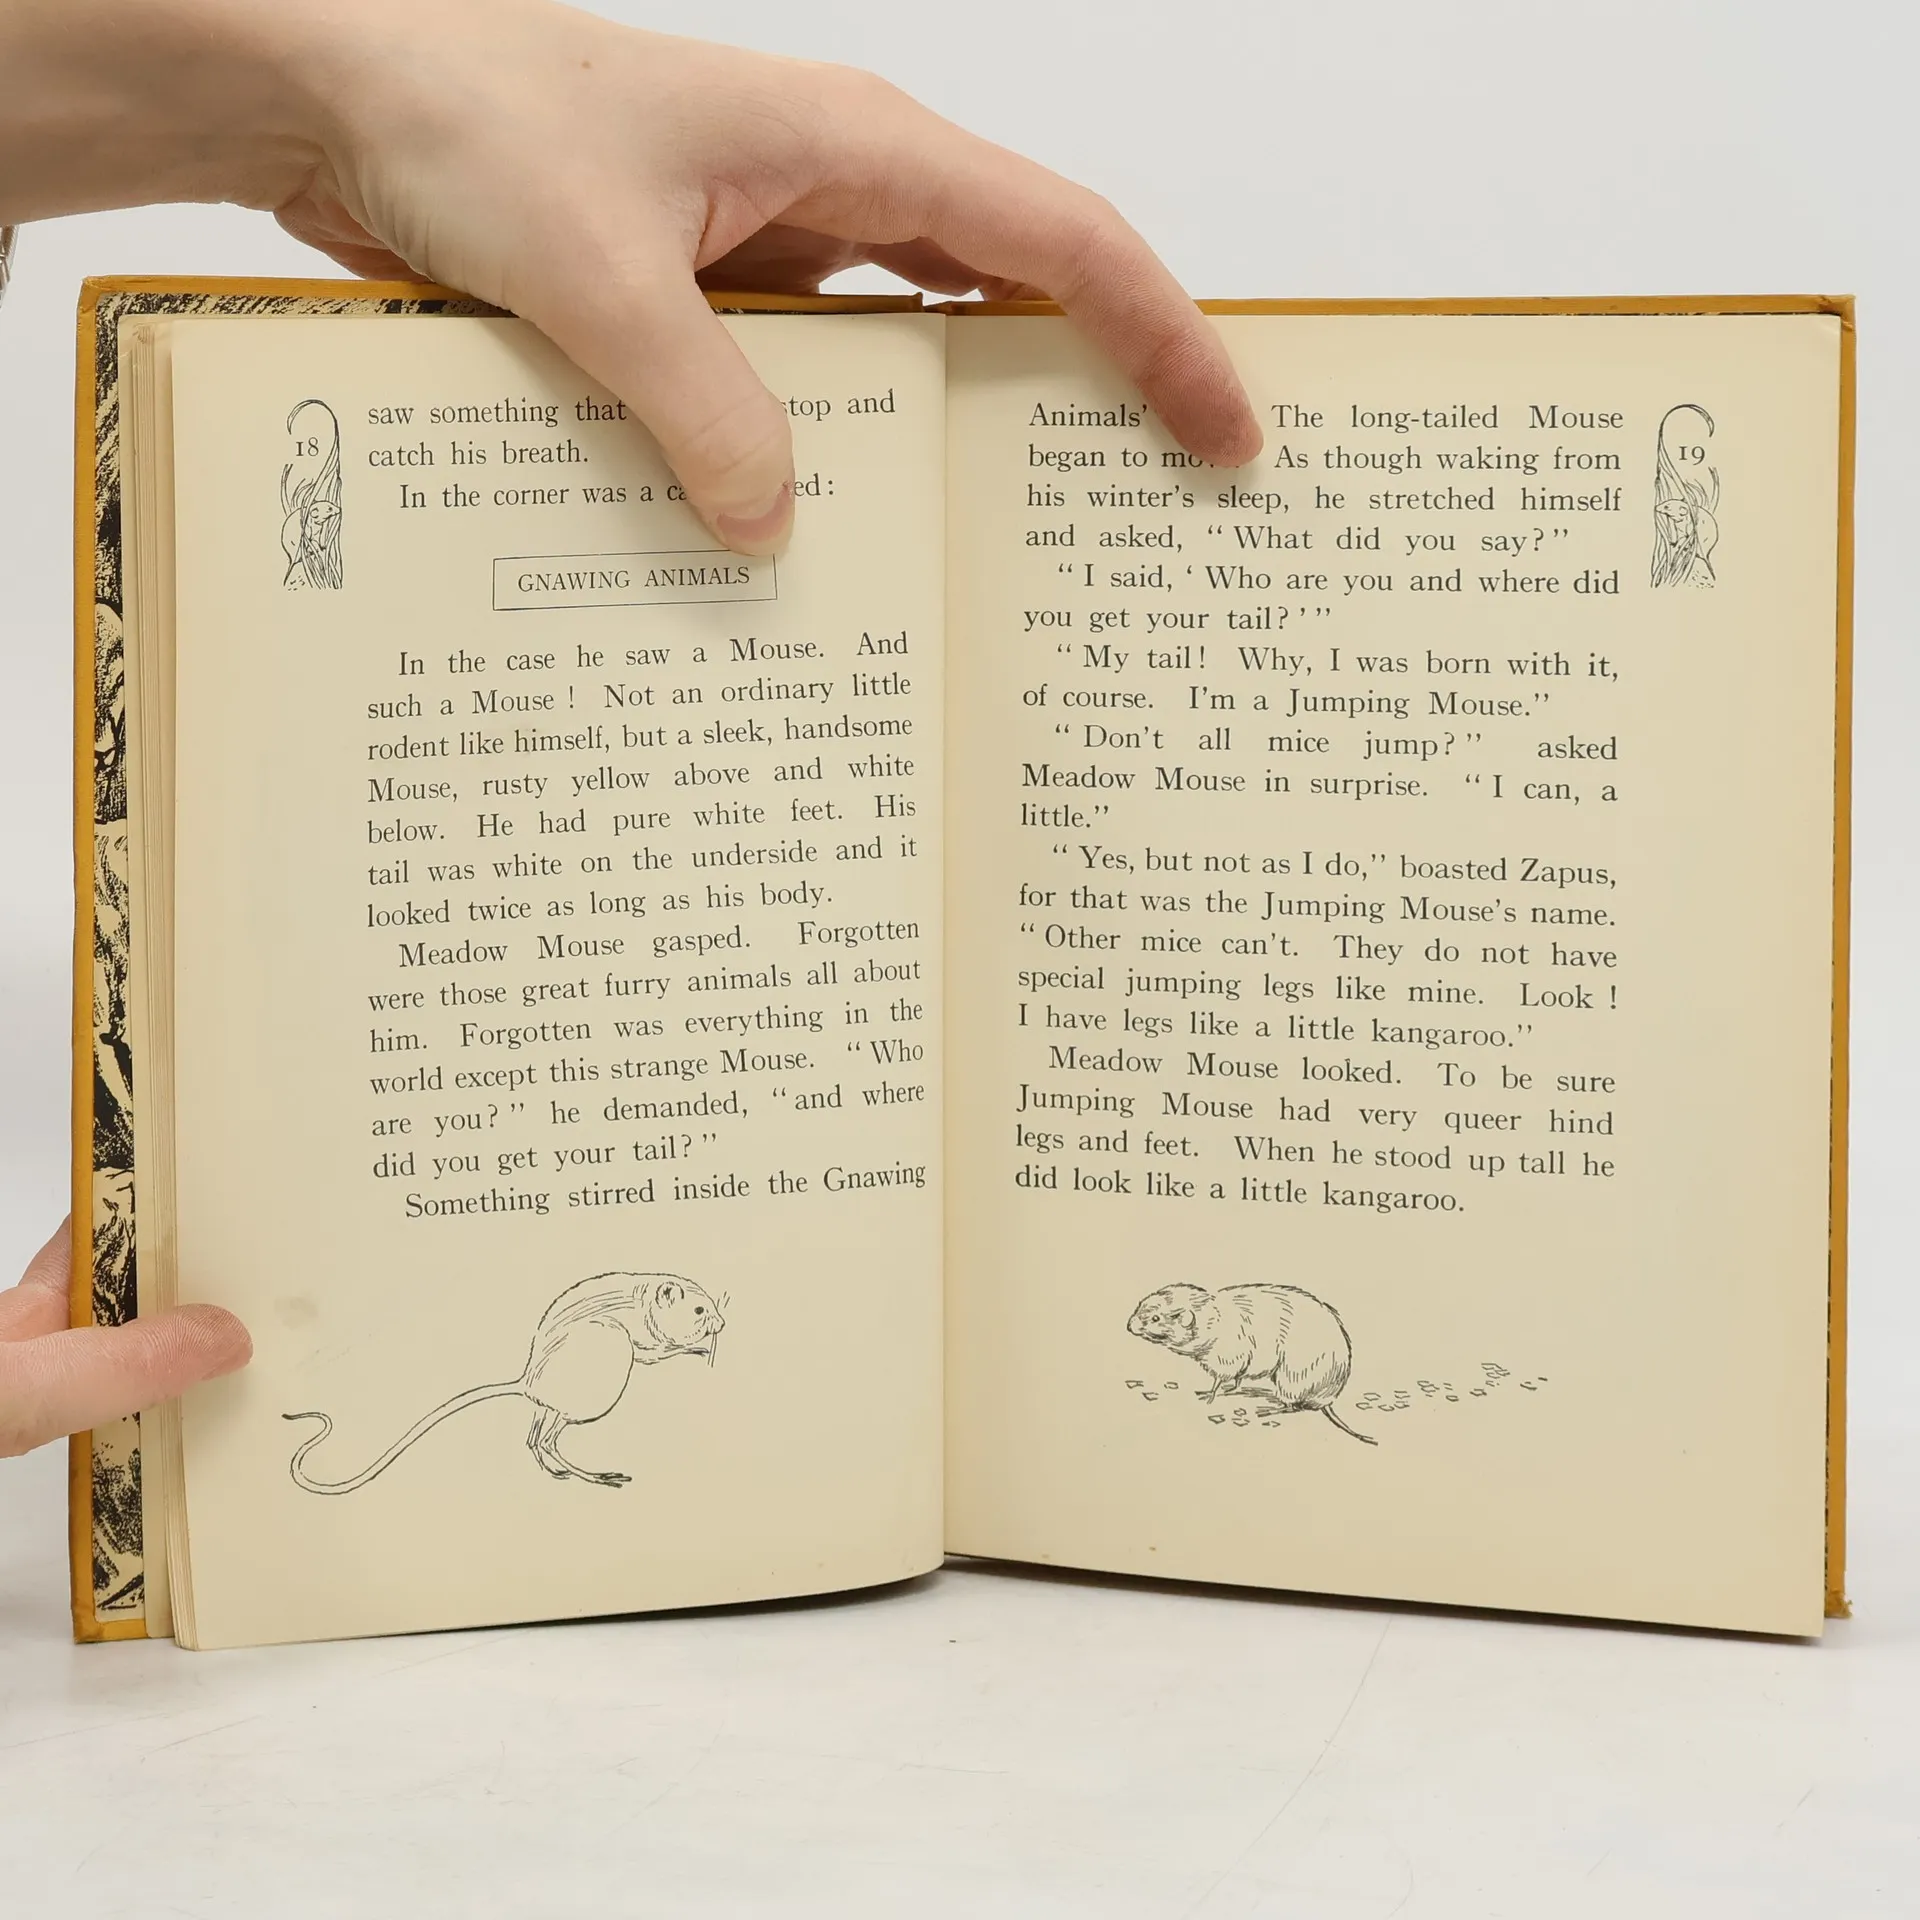 18
saw something that stop and
catch his breath.
In the corner was a
GNAWING ANIMALS
In the case he saw a Mouse. And
such a Mouse ! Not an ordinary little
rodent like himself, but a sleek, handsome
Mouse, rusty yellow above and white
below. He had pure white feet. His
tail was white on the underside and it
looked twice as long as his body.
Meadow Mouse gasped. Forgotten
were those great furry animals all about
him. Forgotten was everything in the
world except this strange Mouse. “Who
are you?” he demanded, “and where
did you get your tail?”
Something stirred inside the Gnawing
19
Animals’ The long-tailed Mouse
began to As though waking from
his winter’s sleep, he stretched himself
and asked, “What did you say?”
“I said, ‘Who are you and where did
you get your tail?’”
“My tail! Why, I was born with it,
of course. I’m a Jumping Mouse.”
“Don’t all mice jump?” asked
Meadow Mouse in surprise. “I can, a
little.”
“Yes, but not as I do,” boasted Zapus,
for that was the Jumping Mouse’s name.
“Other mice can’t. They do not have
special jumping legs like mine. Look !
I have legs like a little kangaroo.”
Meadow Mouse looked. To be sure
Jumping Mouse had very queer hind
legs and feet. When he stood up tall he
did look like a little kangaroo.